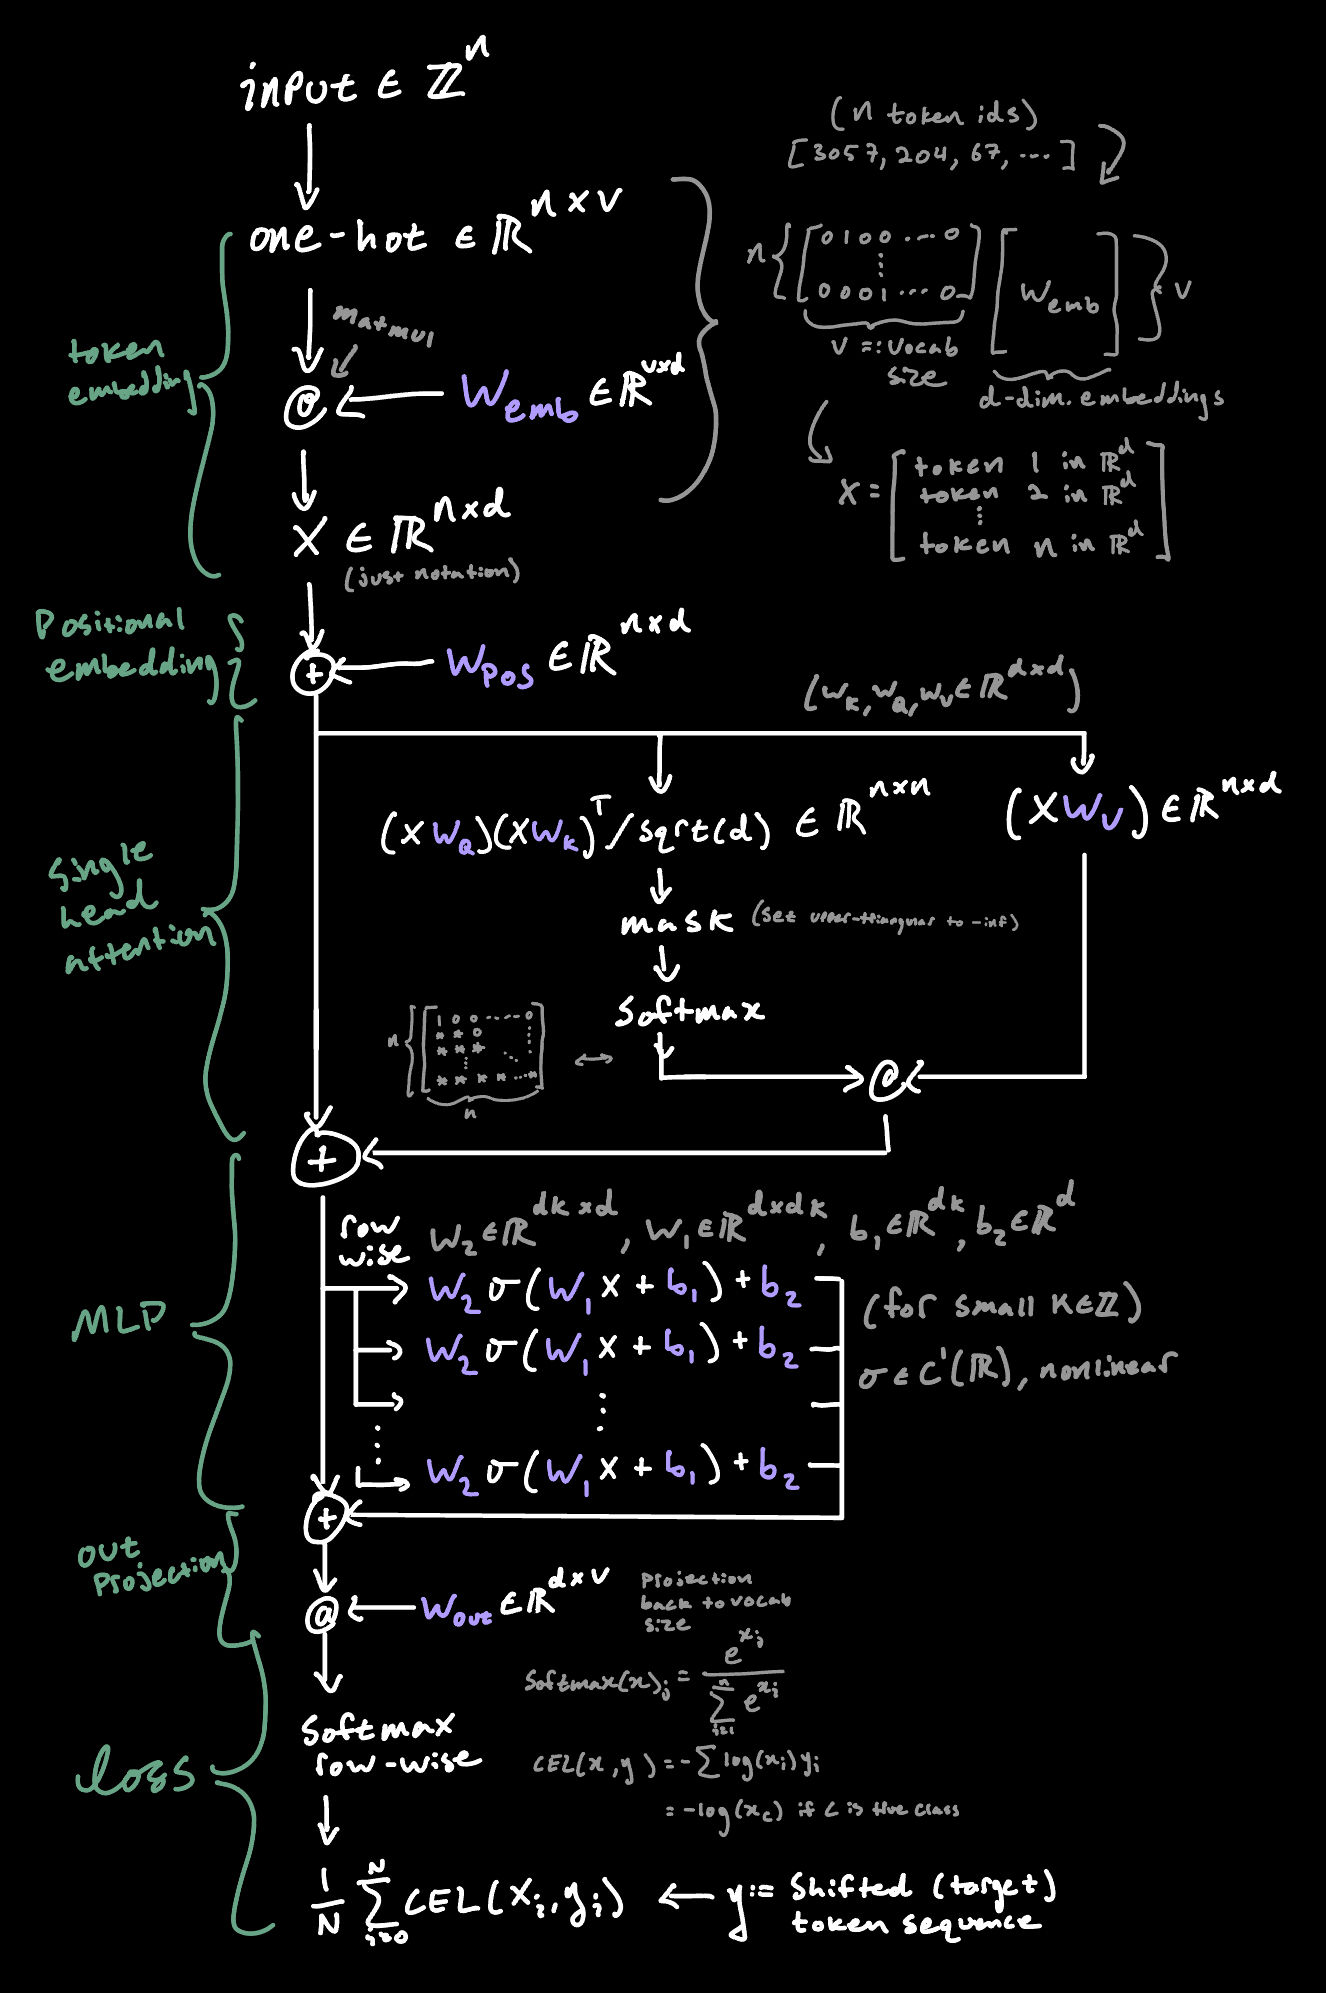 input ∈ ℤⁿ
(n token ids)
[3057, 204, 67, ....]
one-hot ∈ ℝ^{n×v}
n { [0 1 0 0 .... 0
⋮
0 0 0 1 .... 0] [W_emb] } v
v =: vocab
size
d-dim. embeddings
token
embedding
matmul
@ ← W_emb ∈ ℝ^{v×d}
X = [token 1 in ℝ^d
token 2 in ℝ^d
⋮
token n in ℝ^d]
X ∈ ℝ^{n×d}
(just notation)
Positional
embedding
+ ← W_pos ∈ ℝ^{n×d}
(W_K, W_Q, W_V ∈ ℝ^{d×d})
(X W_Q)(X W_K)^T / sqrt(d) ∈ ℝ^{n×n}
(X W_V) ∈ ℝ^{n×d}
single
head
attention
mask (set upper-triangular to -inf)
softmax
n { [1 0 0 ..... 0
* * 0 ⋮
* * * ⋱ ⋮
⋮
* * * * ...*]
n
↔
@
+
row
wise
W_2 ∈ ℝ^{dk×d}, W_1 ∈ ℝ^{d×dk}, b_1 ∈ ℝ^{dk}, b_2 ∈ ℝ^d
MLP
W_2 σ(W_1 x + b_1) + b_2
W_2 σ(W_1 x + b_1) + b_2
⋮
W_2 σ(W_1 x + b_1) + b_2
(for small K∈ℤ)
σ ∈ C'(ℝ), nonlinear
+
out
projection
@ ← W_out ∈ ℝ^{d×v}
projection
back to vocab
size
softmax(x)_j = e^{x_j} / ∑_{i=1}^{n} e^{x_i}
softmax
row-wise
loss
CEL(x, y) = -∑ log(x_i) y_i
= -log(x_c) if c is true class
1/N ∑_{i=0}^{N} CEL(X_i, y_i) ← y := shifted (target)
token sequence